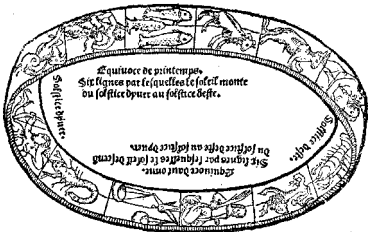 Equinoce de printemps.
Six signes par lesquelles le soleil monte
du solstice dyver au solstice deste.
Solstice dyver.
Solstice deste.
Equinoce dautonne.
Six signes par lesquelles le soleil descend
du solstice deste au solstice dyver.